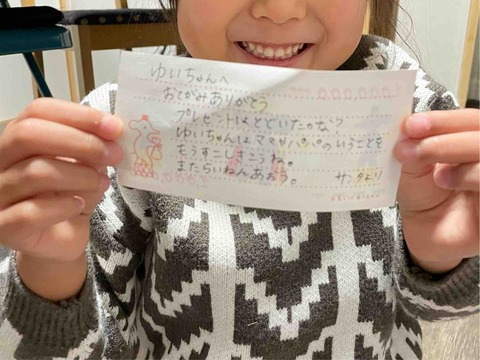 ゆいちゃんへ
おてがみありがとう
プレゼントはとどいたかな?
ゆいちゃんはママやパパのいうことを
もうすこしきこうね。
またらいねんあおう。 サンタより